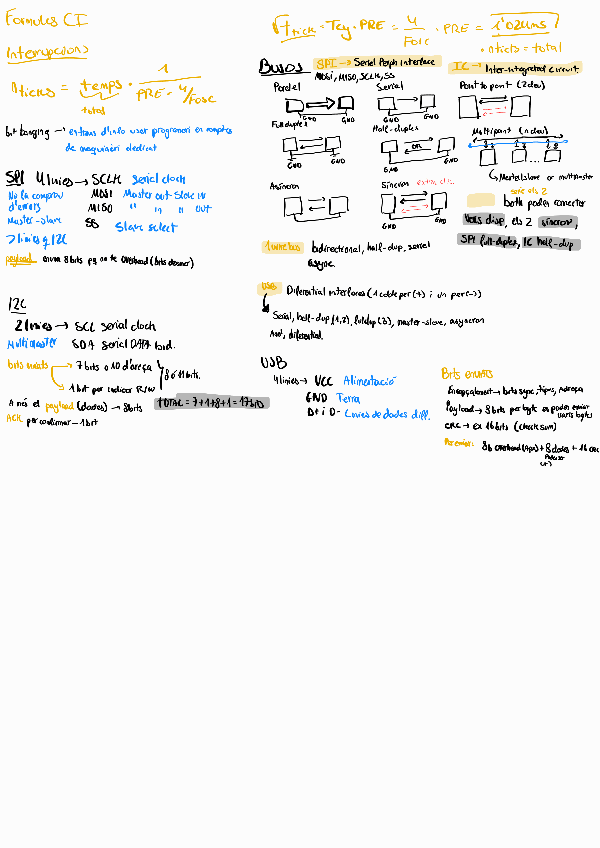 Formules CI
Interrupcions
nticks = temps · 1
total PRE · 4/Fosc
bit banging → entrans d'info usar programari en comptes
de maquinari dedicat
SPI 4 línies → SCLK serial clock
No fa comprov MOSI Master out Slave in
d'errors MISO " in " out
Master-slave SS Slave select
> línies q I2C
payload envia 8 bits pq no té overhead (bits desner)
I2C
2 línies → SCL serial clock
Multimaster SDA serial DATA bid.
bits enviats → 7 bits o 10 d'adreça
8 ó 11 bits.
→ 1 bit per indicar R/W
A més el payload (dades) → 8 bits TOTAL = 7+1+8+1 = 17 bits
ACK per confirmar - 1 bit
ttick = Tcy · PRE = 4 · PRE = 1'024ms
Fosc · nticks = total
Busos SPI → Serial Periph Interface IC → Inter-integrated circuit.
MOSI, MISO, SCLK, SS
Paral·lel Serial Point to point (2 dev)
GND GND GND GND
Full duplex Half-duplex Multipoint (n dev)
OR
GND GND GND GND
→ Master/slave or multimaster
Asíncron Síncron extra, clk.
GND GND
serie els 2
both poden connectar
varis disp, els 2 síncron,
SPI full-duplex, IC half-dup
1 wire bus bidirectional, half-dup, serial
async.
USB Diferential interfaces (1 cable per (+) i un per (-))
Serial, half-dup (1,2), fulldup (3), master-slave, asyncron
diferential.
USB
4 línies → VCC Alimentació
GND Terra
D+ i D- Línies de dades diff.
Bits enviats
Encapçalament → bits sync, tipus, adreça
Payload → 8 bits per byte es poden enviar
varis bytes
CRC → ex 16 bits (checksum)
Per enviar: 8b overhead + 8 dades + 16 CRC